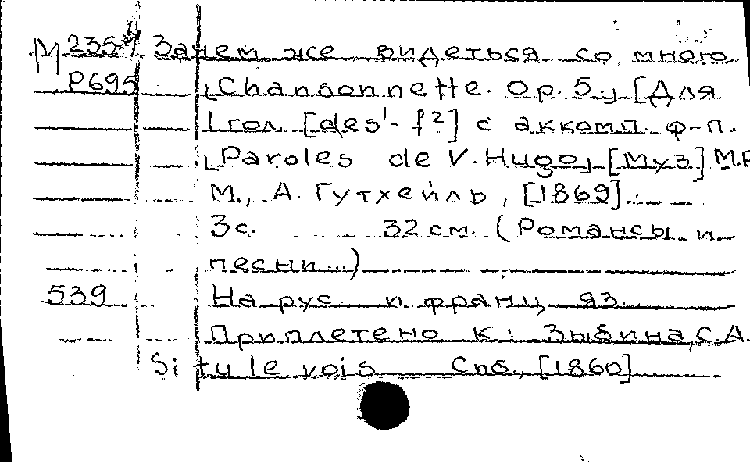 М 235 Зачем же видеться со мною
P695 Chansonnette. Op. 5. [Для
1 гол [des¹- f²] с аккомп. ф-п.
Paroles de V. Hugo, [муз] М.Р
М., А. Гутхейль, [1869].
3 с. 32 см. (Романсы и
песни...)
539 На рус. и франц. яз.
Приплетено к: Зыбина, С.А.
Si tu le vois Спб., [1860]